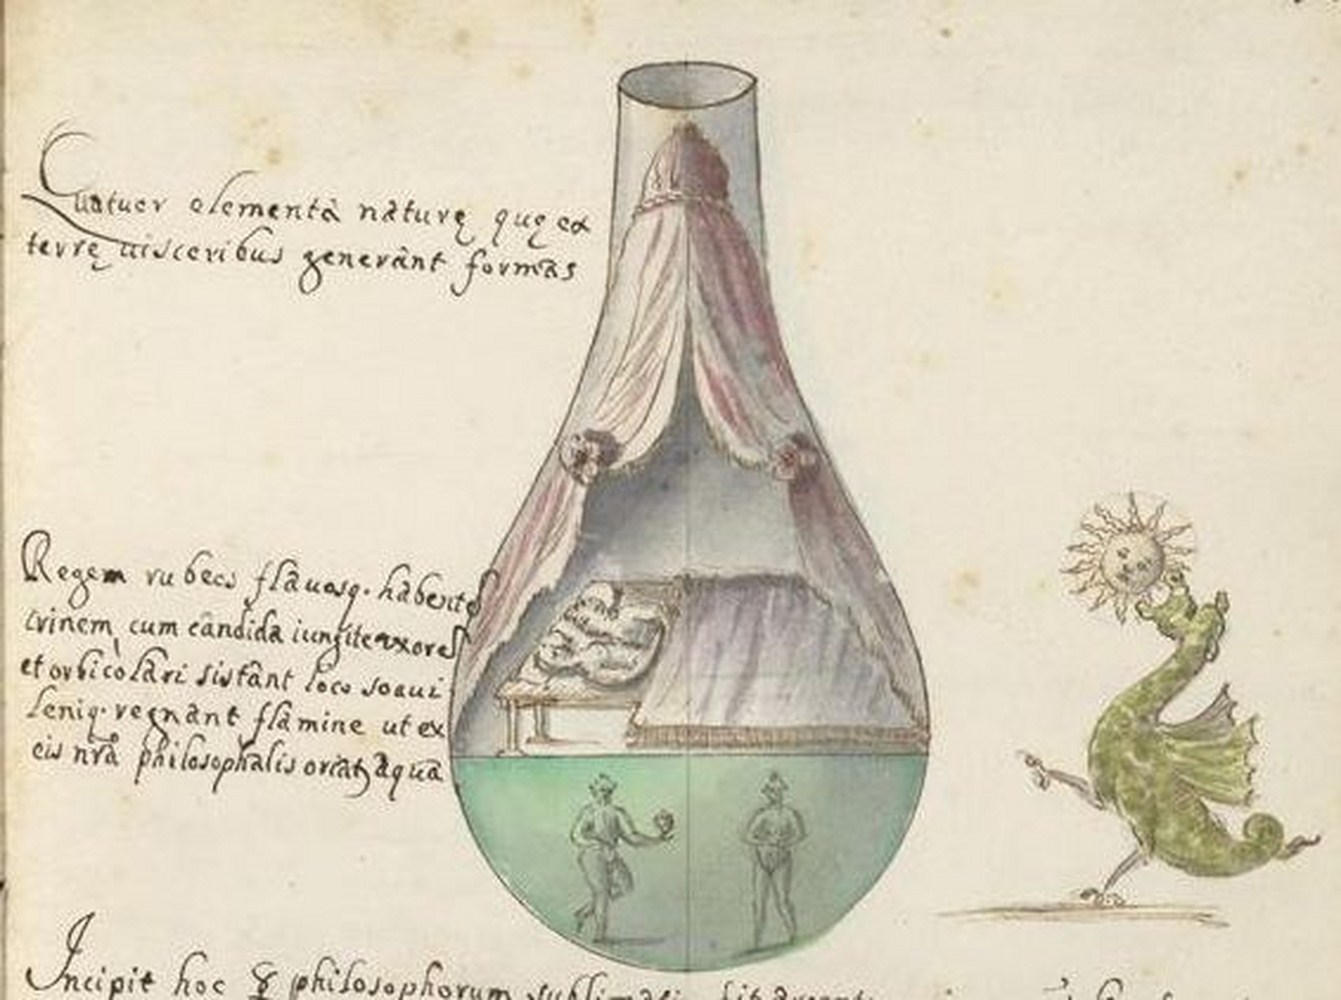 Quatuor elementa naturę quę ex
terrę uisceribus generant formas
Regem rubeū flauosq. habentē
crinem, cum candida iungite uxore
et orbicolari sistant loco soaui
leniq. regnant flamine ut ex
eis nrā philosophalis oriat aqua
Incipit hoc ☿ philosophorum sublimati